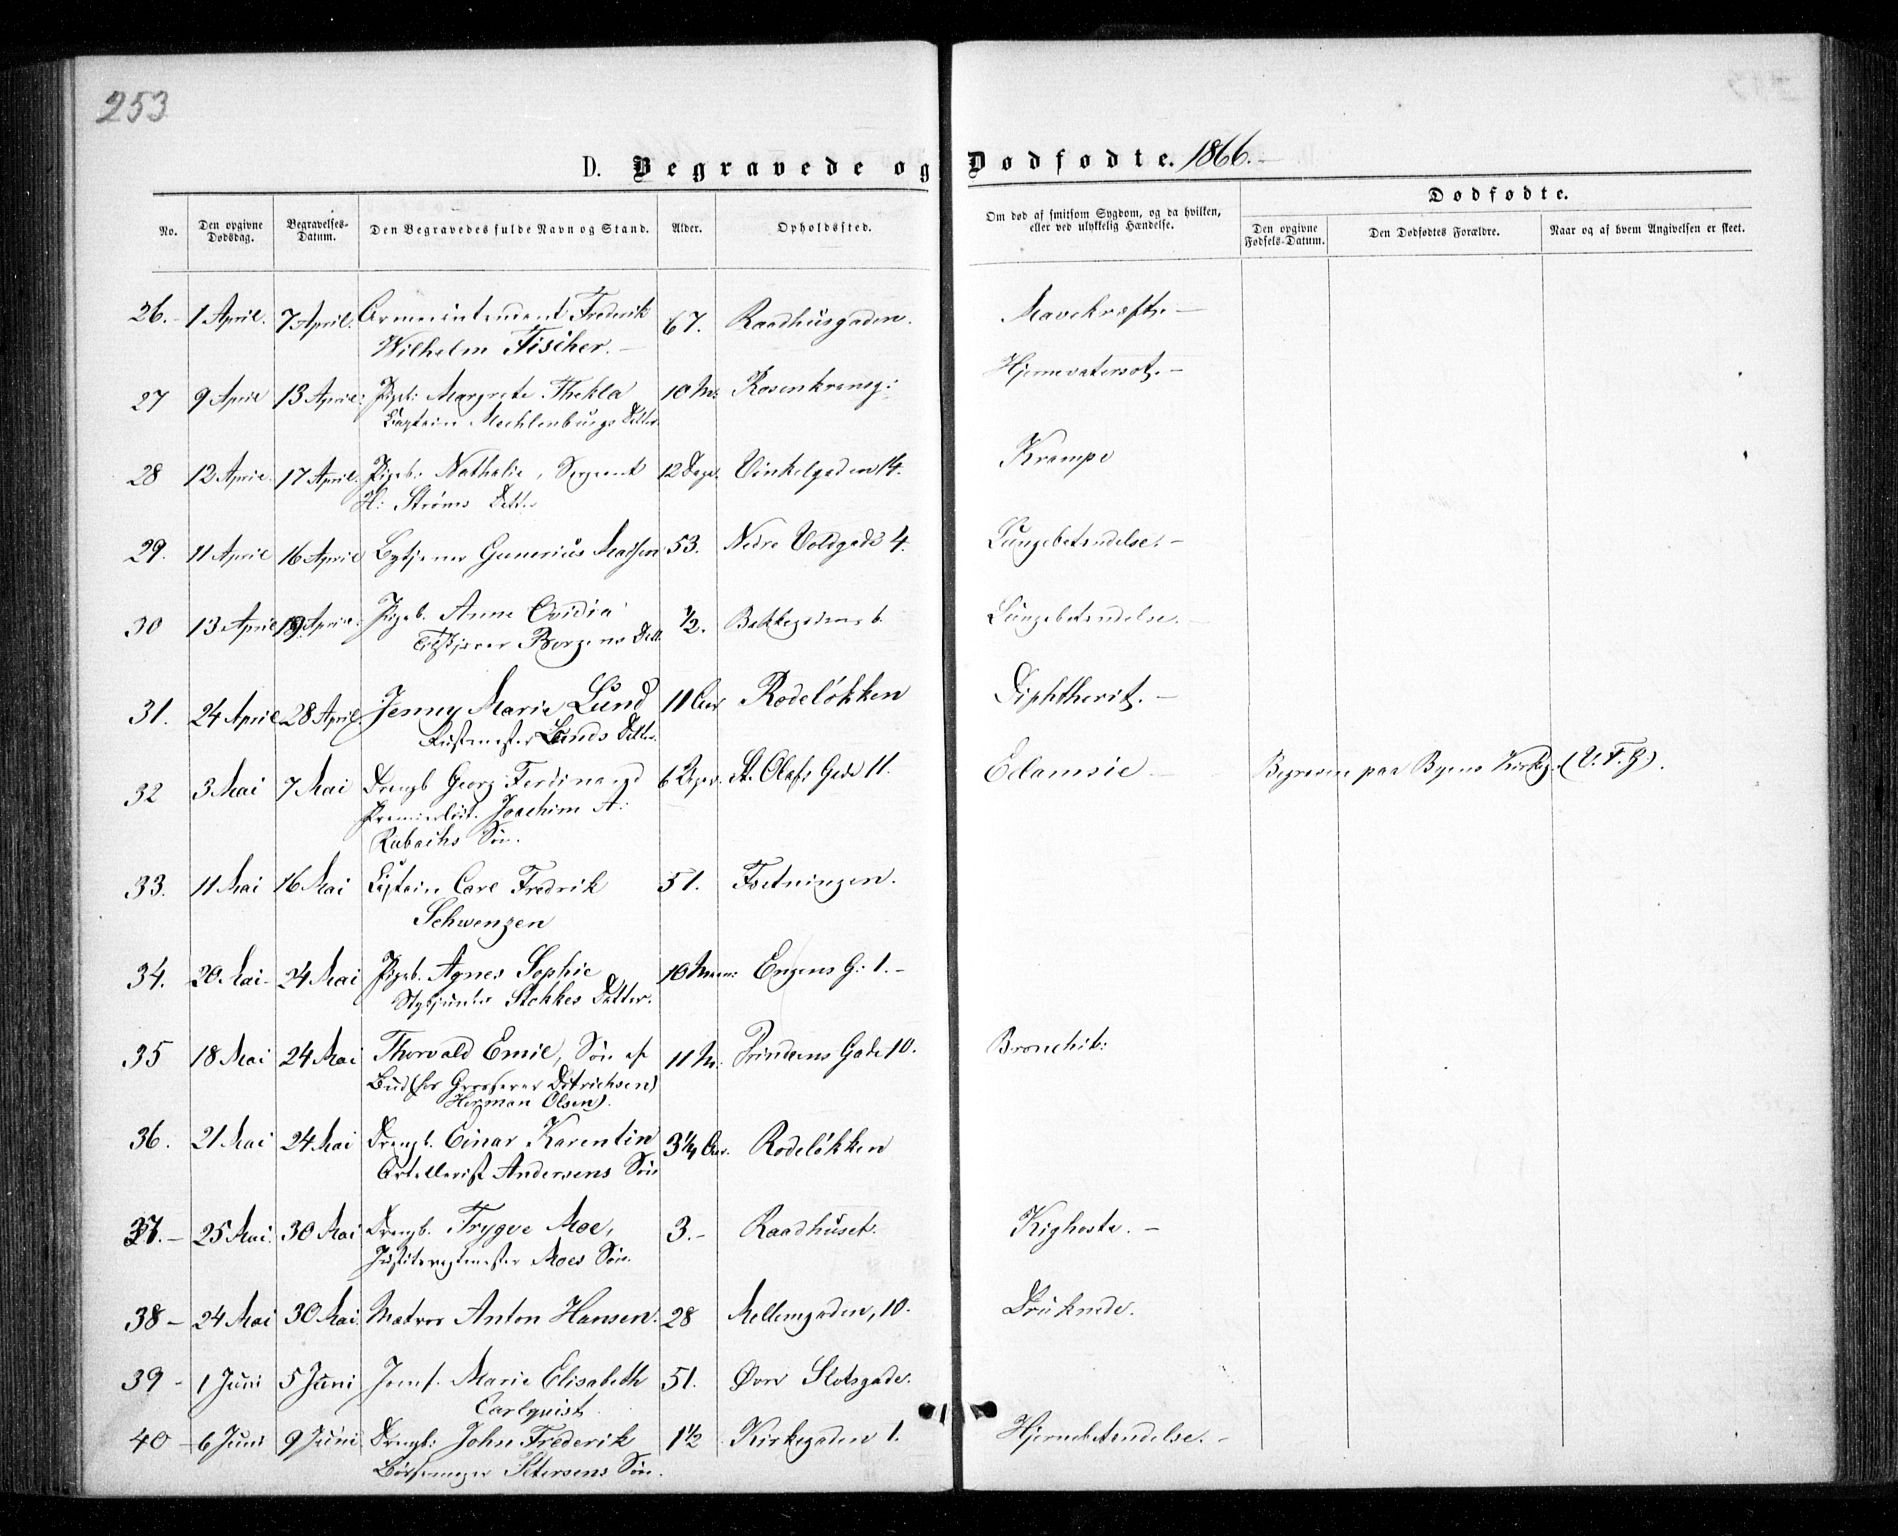 253
D. Begravede og Dødfødte. 1866.
No. Den opgivne Dødsdag. Begravelses-Datum. Den Begravedes fulde Navn og Stand. Alder. Opholdssted. Om død af smitsom Sygdom, og da hvilken, eller ved ulykkelig Hændelse. Dødfødte.
Den opgivne Fødsels-Datum. Den Dødfødtes Forældre. Naar og af hvem Angivelsen er skeet.
26. 1 April. 7 April. Armeeintendent Fredrik 67. Raadhusgaden. Mavekræft.
Wilhelm Fischer.
27 9 April 13 April Pigeb. Margrete Thekla 10 M. Rosenkransg: Hjernevatersot.
Captein Mechlenburgs Datter
28 12 April. 17 April. Pigeb. Nathalie, Sergeant 12 Dage. Vinkelgaden 14. Krampe
H: Strøms Datter
29. 11 April 16 April Gunerius 53. Nedre Voldgade 4. Lungebetændelse.
30 13 April 19 April. Pigeb. Anne Ovidia 1/2. Bakkegaden 6. Lungebetændelse.
Borgens Datt.
31. 24 April 28 April. Jenny Marie Lund 11 Aar Rodeløkken Diphtherit.
Rustmester Lunds Datter.
32 3 Mai 7 Mai Drengb Georg Ferdinand 6 Dage. St. Olafs Gade 11. Eclamsie Begraven paa Byens Kirkeg. (V. F. G).
Premierløit. Joachim A:
Rubachs Søn.
33. 11 Mai 16 Mai Captein Carl Fredrik 51. Fæstningen.
Schwenzen
34. 20 Mai. 24 Mai Pigeb. Agnes Sophie 10 Maan: Engens G: 1.
Stokkes Datter.
35 18 Mai 24 Mai Thorvald Emil, Søn af 11 M. Prindsens Gade 10. Bronchit:
Bud (for Grosserer Ditrichsen)
Herman Olsen).
36. 21 Mai 24 Mai Drengb. Einar Karentin 3 1/4 Aar. Rodeløkken
Artellerist Andersens Søn
37. 25 Mai. 30 Mai Drengb. Trygve Moe, 3. Raadhuset. Kighoste.
Moes Søn.
38 24 Mai 30 Mai. Matros Anton Hansen. 28 Mellemgaden, 10. Druknede.
39 1 Juni 5 Juni Jomf. Marie Elisabeth 51. Øvre Slotsgade.
Carlquist
40 6 Juni 9 Juni Drengb: John Frederik 1 1/2 Kirkegaden 1. Hjernebetændelse.
Børsemager Petersens Søn.